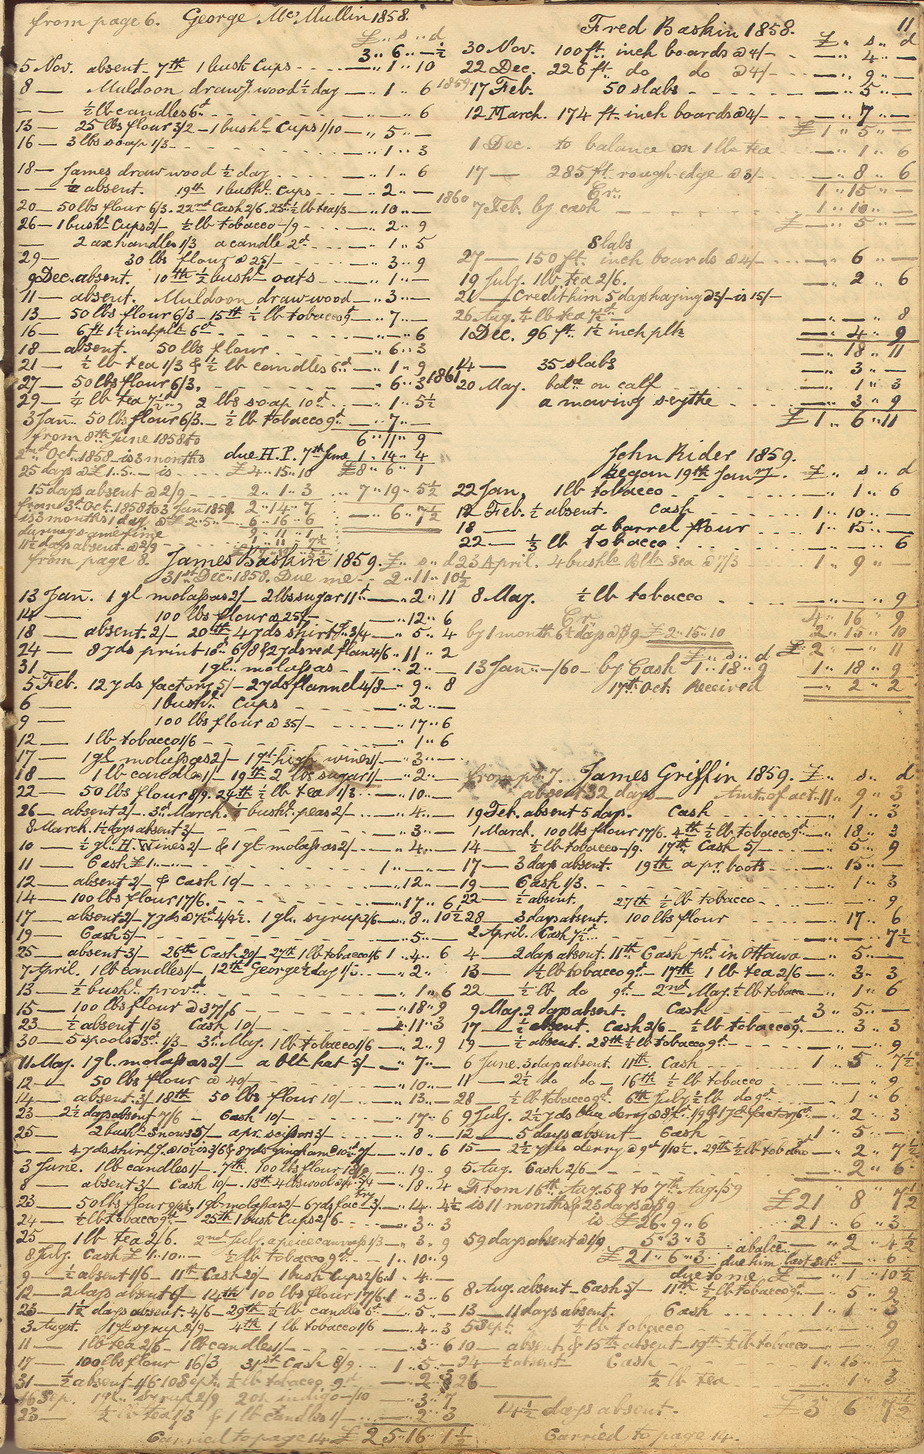 from page 6. George McMullin 1858.
£ .. s .. d
3 .. 6 .. — ½
5 Nov. absent. 7th 1 bush Cups — .. 1 .. 10
8 — Muldoon drawg. wood ½ day — .. 1 .. 6
— ½ lb candles 6d — .. — .. 6
13 — 25 lbs flour 3/2 — 1 bushl. Cups 1/10 — .. 5 .. —
16 — 3 lbs soap 1/3 — .. 1 .. 3
18 — James draw wood ½ day — .. 1 .. 6
— ½ absent. 19th 1 bushl. Cups — .. 2 .. —
20 — 50 lbs flour 6/3. 22nd Cash 2/6. 25th ½ lb tea 1/3 — .. 10 .. —
26 — 1 bushl Cups 2/ — ½ lb tobacco -/9 — .. 2 .. 9
— 2 axhandles 1/3 a candle 2d — .. 1 .. 5
29 — 30 lbs flour @ 25/ — .. 3 .. 9
9 Dec. absent. 10th ½ bushl oats — .. 1 .. —
11 — absent. Muldoon draw wood — .. 3 .. —
13 — 50 lbs flour 6/3 — 15th ½ lb tobacco 9d — .. 7 .. —
16 — 6 ft 1½ inch plk 6d — .. — .. 6
18 — absent. 50 lbs flour — .. 6 .. 3
21 — ½ lb tea 1/3 & ½ lb candles 6d — .. 1 .. 9
27 — 50 lbs flour 6/3. — .. 6 .. 3
29 — ¼ lb tea 7½d, 2 lbs soap 10d — .. 1 .. 5½
3 Jan. 50 lbs flour 6/3 — ½ lb tobacco 9d — .. 7 .. —
from 8th June 1858 to 6 .. 11 .. 9
2nd Oct. 1858 is 3 months due H.P. 7th June 1 .. 14 .. 4
25 days @ £1..5.. — is £4 .. 15 .. 10 £8 .. 6 .. 1
15 days absent @ 2/9 2 .. 1 .. 3 7 .. 19 .. 5½
from 3d Oct. 1858 to 3 Jan 1859 2 .. 14 .. 7 — .. 6 .. 7½
is 3 months 1 day @ £2..5 .. — 6 .. 16 .. 6
during same time
11½ days absent @ 2/9 1 .. 11 .. 7½
from page 8. James Baskin 1859. £ .. s .. d
31st Dec. 1858. Due me — 2 .. 11 .. 10½
13 Jan. 1 gl molasses 2/ — 2 lbs sugar 11d — .. 2 .. 11
14 — 100 lbs flour @ 25/ — .. 12 .. 6
18 — absent. 2/ — 20th 4 yds shirtg. 3/4 — .. 5 .. 4
24 — 8 yds print 10d 6/8 & 2 yds red flan 4/6 .. 11 .. 2
31 1 gl. molassas — .. 2 .. —
5 Feb. 12 yds factory 5/ — 2 yds flannel 4/8 — .. 9 .. 8
6 — 1 bushl. Cups — .. 2 .. —
9 — 100 lbs flour @ 35/ — .. 17 .. 6
12 — 1 lb tobacco 1/6 — .. 1 .. 6
17 — 1 gl. molassas 2/ — 1 qt high wines 1/ — .. 3 .. —
18 — 1 lb candles 1/ — 19th 2 lbs sugar 1/ — .. 2 .. —
22 — 50 lbs flour 8/9. 24th ½ lb tea 1/3 — .. 10 .. —
26 — absent 2/ — 3d March. ½ bushl. peas 2/ — .. 4 .. —
8 March. 1½ days absent 3/ — .. 3 .. —
10 — ½ gl. H. Wines 2/ — & 1 gl molassas 2/ — .. 4 .. —
11 Cash £1 .. — .. — 1 .. — .. —
12 — absent 2/ & Cash 10/ — .. 12 .. —
14 — 100 lbs flour 17/6. — .. 17 .. 6
17 — absent 2/ — 7 yds @ 7½d 4/4½. 1 gl. syrup 2/6 — .. 8 .. 10½
19 — Cash 5/ — .. 5 .. —
25 — absent 3/ — 26th Cash 20/ — 27th 1 lb tobacco 1/6 1 .. 4 .. 6
7 April. 1 lb candles 1/ — 12th George ½ day 1/ — .. 2 .. —
13 — ½ bushl. prov. — .. 1 .. 6
15 — 100 lbs flour @ 37/6 — .. 18 .. 9
23 — ½ absent 1/3 Cash 10/ — .. 11 .. 3
30 — 5 spools @ 3d 1/3 — 3d May. 1 lb tobacco 1/6 — .. 2 .. 9
11 May. 1 gl. molassas 2/ — a blk hat 5/ — .. 7 .. —
12 — 50 lbs flour @ 40/ — .. 10 .. —
14 — absent. 3/ 18th 50 lbs flour 10/ — .. 13 .. —
23 — 2½ days absent 7/6 — Cash 10/ — .. 17 .. 6
25 — 2 bushl. Snows 5/ — a pr. scissors 3/ — .. 8 .. —
— 4 yds shirtg. @ 10½ is 3/6 & 8 yds gingham @ 10½ 7/ — .. 10 .. 6
3 June. 1 lb candles 1/ — 7th 100 lbs flour — .. 19 .. 9
8 — absent 3/ Cash 10/ — 13th 4 lbs wool — .. 18 .. 4
23 — 50 lbs flour 1 gl molassas 2/ — 6 yds fac. 3/ — .. 14 .. 4½
24 — ½ lb tobacco 9d — 25th 1 bush Cups 2/6 — .. 3 .. 3
25 — 1 lb tea 2/6. 2nd July. a piece canvas 1/3 — .. 3 .. 9
8 July. Cash £1..10 .. — ½ lb tobacco 9d 1 .. 10 .. 9
9 — ½ absent 1/6 — 11th Cash 20/ — 1 bush Cups 2/6 1 .. 4 .. —
12 — 2 days absent 6/ — 14th 100 lbs flour 17/6 1 .. 3 .. 6
23 — 1½ days absent — 4/6 — 29th ½ lb candles 6d — .. 5 .. —
3 Augst. 1 gl syrup 2/9 4th 1 lb tobacco 1/6 — .. 4 .. 3
11 — 1 lb tea 2/6 1 lb candles 1/ — .. 3 .. 6
17 — 100 lbs flour 16/3 31st Cash 8/9 1 .. 5 .. —
31 — ½ absent 1/6 10 Sept. ½ lb tobacco 9d — .. 2 .. 3
16 Sep. 1 gl. syrup 2/9 2 oz. indigo -/10 — .. 3 .. 7
23 — ½ lb tea 1/3 & 1 lb candles 1/ — .. 2 .. 3
Carried to page 14 £25 .. 16 .. 1½
11
Fred Baskin 1858. £ .. s .. d
30 Nov. 100 ft. inch boards @ 4/ — .. 4 .. —
22 Dec. 226 ft do do @ 4/ — .. 9 .. —
1859 17 Feb. 50 slabs — .. 5 .. —
12 March. 174 ft. inch boards @ 4/ — .. 7 .. —
£1 .. 5 .. —
1 Dec. to balance on 1 lb tea — .. 1 .. 6
17 — 285 ft. rough-edge @ 3/ — .. 8 .. 6
Cr. 1 .. 15 .. —
1860 7 Feb. by cash 1 .. 10 .. —
£ — .. 5 .. —
Slabs
27 — 150 ft. inch boards @ 4/ — .. 6 .. —
19 July. 1 lb. tea 2/6. — .. 2 .. 6
21 — Credit him 5 days haying @ 3/ — is 15/
26 Aug. ¼ lb tea 7½d — .. — .. 8
1 Dec. 96 ft. 1½ inch plk — .. 4 .. 9
— .. 18 .. 11
14 — 35 slabs — .. 3 .. —
1861 20 May. balce on calf — .. 1 .. 3
a mowing scythe — .. 3 .. 9
£1 .. 6 .. 11
John Rider 1859.
Began 19th Jany. £ .. s .. d
22 Jan. 1 lb tobacco — .. 1 .. 6
12 Feb. ½ absent. Cash 1 .. 10 .. —
18 — a barrel flour 1 .. 15 .. —
22 — ½ lb tobacco — .. — .. 6
23 April. 4 bushls Blk Sea @ 7/3 1 .. 9 .. —
8 May. ½ lb tobacco — .. — .. 9
Cr. 4 .. 16 .. 9
by 1 month 6½ days @ £2 .. 15 .. 10 2 .. 15 .. 10
£2 .. — .. 11
£ .. s .. d
13 Jan. — /60 — by Cash 1 .. 18 .. 9 1 .. 18 .. 9
17th Oct. Received — .. 2 .. 2
from p. 7. James Griffin 1859. £ .. s .. d
absent 32 days — Amt. of act. 11 .. 9 .. 3
19 Feb. absent 5 days. Cash — .. 1 .. 3
1 March. 100 lbs flour 17/6. 4th ½ lb tobacco 9d — .. 18 .. 3
14 — ½ lb tobacco -/9. 17th Cash 5/ — .. 5 .. 9
17 — 3 days absent. 19th a pr. boots — .. 15 .. —
19 — Cash 1/3. — .. 1 .. 3
22 — ½ absent. 27th ½ lb tobacco — .. — .. 9
28 — 3 days absent. 100 lbs flour — .. 17 .. 6
2 April. Cash 7½d — .. — .. 7½
4 — 2 days absent. 11th Cash pd. in Ottawa — .. 5 .. —
13 — ½ lb tobacco 9d. — 17th 1 lb tea 2/6 — .. 3 .. 3
22 — ½ lb do 9d — 2nd May. ½ lb tobacco — .. 1 .. 6
9 May. 2 days absent. Cash 3 .. 5 .. —
17 — ½ absent. Cash 2/6 — ½ lb tobacco 9d. — .. 3 .. 3
19 — ½ absent. 28th ½ lb tobacco 9d — .. — .. 9
6 June. 3 days absent. 11th Cash 1 .. 5 .. 7½
11 — 2½ do do — 16th ½ lb tobacco — .. — .. 9
28 — ½ lb tobacco 9d. 6th July ½ lb do 9d — .. 1 .. 6
9 July. 2½ yds blue derry @ & 1 yd factory 6d — .. 2 .. 3
12 — 5 days absent — Cash 1 .. 5 .. —
15 — 2½ yds derry @ 9d 1/10½. 29th ½ lb tobacco — .. 2 .. 7½
5 Aug. Cash 2/6 — .. 2 .. 6
From 16th Aug. 58 to 7th Aug. /59 £21 .. 8 .. 7½
is 11 months & 23 days @ £9 21 .. 6 .. 3
is £26 .. 9 .. 6 — .. 2 .. 4½
59 days absent @ 1/9 5 .. 3 .. 3 abalce
£21 .. 6 .. 3 due him last set. — .. 6
due to me £ — .. 1 .. 10½
8 Aug. absent — Cash 5/ — 11th ½ lb tobacco 9d — .. 5 .. 9
13 — 11 days absent. Cash 1 .. 1 .. 3
5 Sept. ½ lb tobacco — .. — .. 9
10 — absent & 15th absent 19th ½ lb tobacco — .. — .. 9
24 — ½ absent Cash 1 .. 15 .. —
26 ½ lb tea — .. 1 .. 3
14½ days absent. £3 .. 6 .. 7½
Carried to page 14.